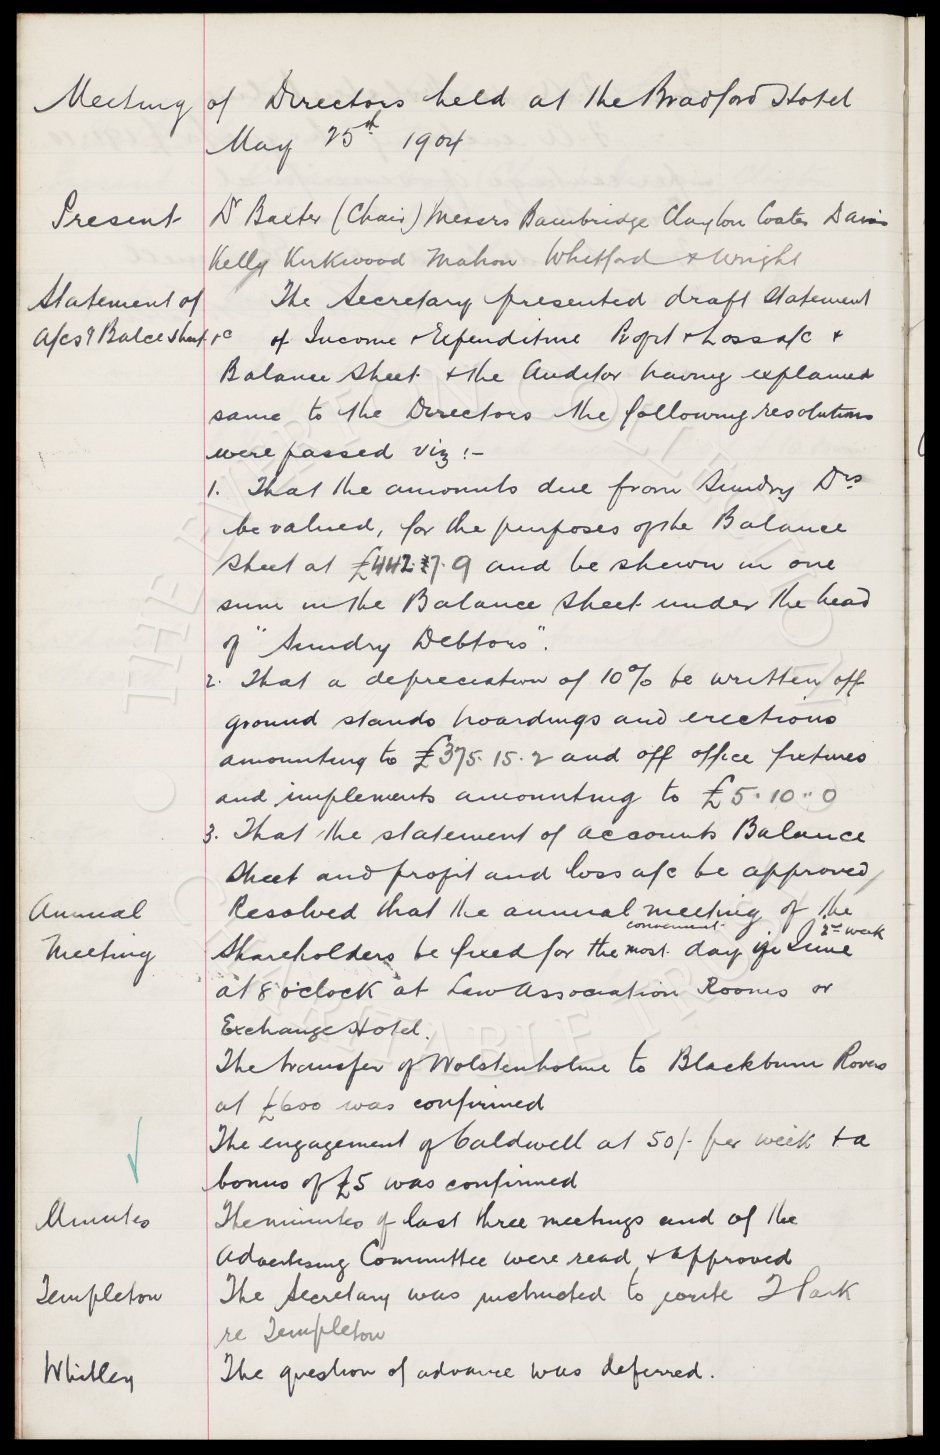 Meeting of Directors held at the Bradford Hotel
May 25th 1904
Present Dr Baxter (Chair) Messrs Bainbridge Clayton Coates Davies
Kelly Kirkwood Mahon Whitford & Wright
Statement of The Secretary presented draft statement
A/cs & Balce Sheet &c of Income & Expenditure Profit & Loss a/c &
Balance Sheet & the Auditor having explained
same to the Directors the following resolutions
were passed viz :-
1. That the amounts due from Sundry Drs
be valued, for the purposes of the Balance
Sheet at £442. 7. 9 and be shewn in one
sum in the Balance Sheet under the head
of "Sundry Debtors".
2. That a depreciation of 10% be written off
ground stands hoardings and erections
amounting to £375. 15. 2 and off office fixtures
and implements amounting to £5. 10. 0
3. That the statement of accounts Balance
Sheet and profit and loss a/c be approved
Annual Resolved that the annual meeting of the
Meeting Shareholders be fixed for the most convenient day in 2nd week June
at 8 o'clock at Law Association Rooms or
Exchange Hotel.
The transfer of Wolstenholme to Blackburn Rovers
at £600 was confirmed
The engagement of Caldwell at 50/- per week & a
bonus of £5 was confirmed
Minutes The minutes of last three meetings and of the
Advertising Committee were read & approved
Templeton The Secretary was instructed to write J Park
re Templeton
Whitley The question of advance was deferred.